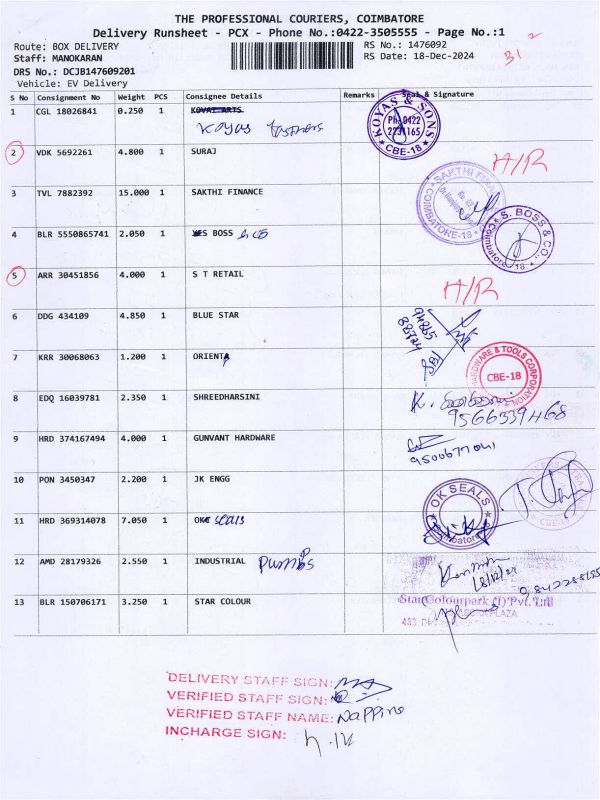 THE PROFESSIONAL COURIERS, COIMBATORE
Delivery Runsheet - PCX - Phone No.:0422-3505555 - Page No.:1
Route: BOX DELIVERY
RS No.: 1476092
Staff: MANOKARAN
RS Date: 18-Dec-2024
31
2
DRS No.: DCJB147609201
Vehicle: EV Delivery
S No Consignment No Weight PCS Consignee Details Remarks Seal & Signature
1 CGL 18026841 0.250 1 KOVAI ARTS
Koyas
KOYAS & SONS
Ph: 0422
2231165
CBE-18
2 VDK 5692261 4.800 1 SURAJ H/R
3 TVL 7882392 15.000 1 SAKTHI FINANCE
SAKTHI
COIMBATORE-18
4 BLR 5550865741 2.050 1 YES BOSS & CO
S. BOSS & CO.
Coimbatore 18.
5 ARR 30451856 4.000 1 S T RETAIL H/R
6 DDG 434109 4.850 1 BLUE STAR
7 KRR 30068063 1.200 1 ORIENT
HARDWARE & TOOLS CORPORATION
CBE-18
8 EDQ 16039781 2.350 1 SHREEDHARSINI
9566339468
9 HRD 374167494 4.000 1 GUNVANT HARDWARE
9500677041
10 PON 3450347 2.200 1 JK ENGG
CBE-18
11 HRD 369314078 7.050 1 OK seals
OK SEALS
Coimbatore
12 AMD 28179326 2.550 1 INDUSTRIAL Pumps
18/12/24
13 BLR 150706171 3.250 1 STAR COLOUR
Star Colourpark (I) Pvt. Ltd
PLAZA
DELIVERY STAFF SIGN:
VERIFIED STAFF SIGN:
VERIFIED STAFF NAME:
INCHARGE SIGN: